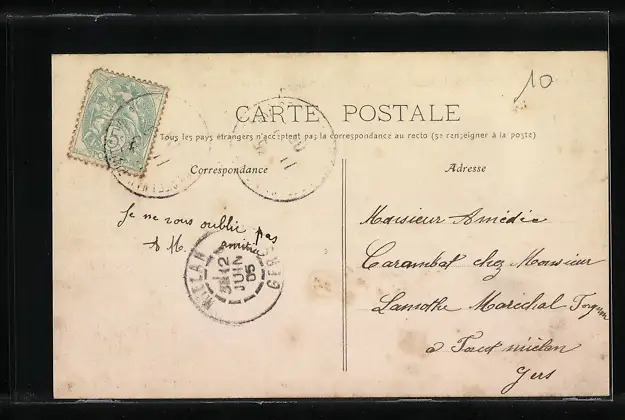 10
CARTE POSTALE
Tous les pays étrangers n'acceptent pas la correspondance au recto (se renseigner à la poste)
Correspondance
Adresse
Je ne vous oublie pas
A M. amitié
MIELAN
12
JUIN
05
GERS
Monsieur Amédée
Carambat chez Monsieur
Lamothe Maréchal
a miélan
Gers